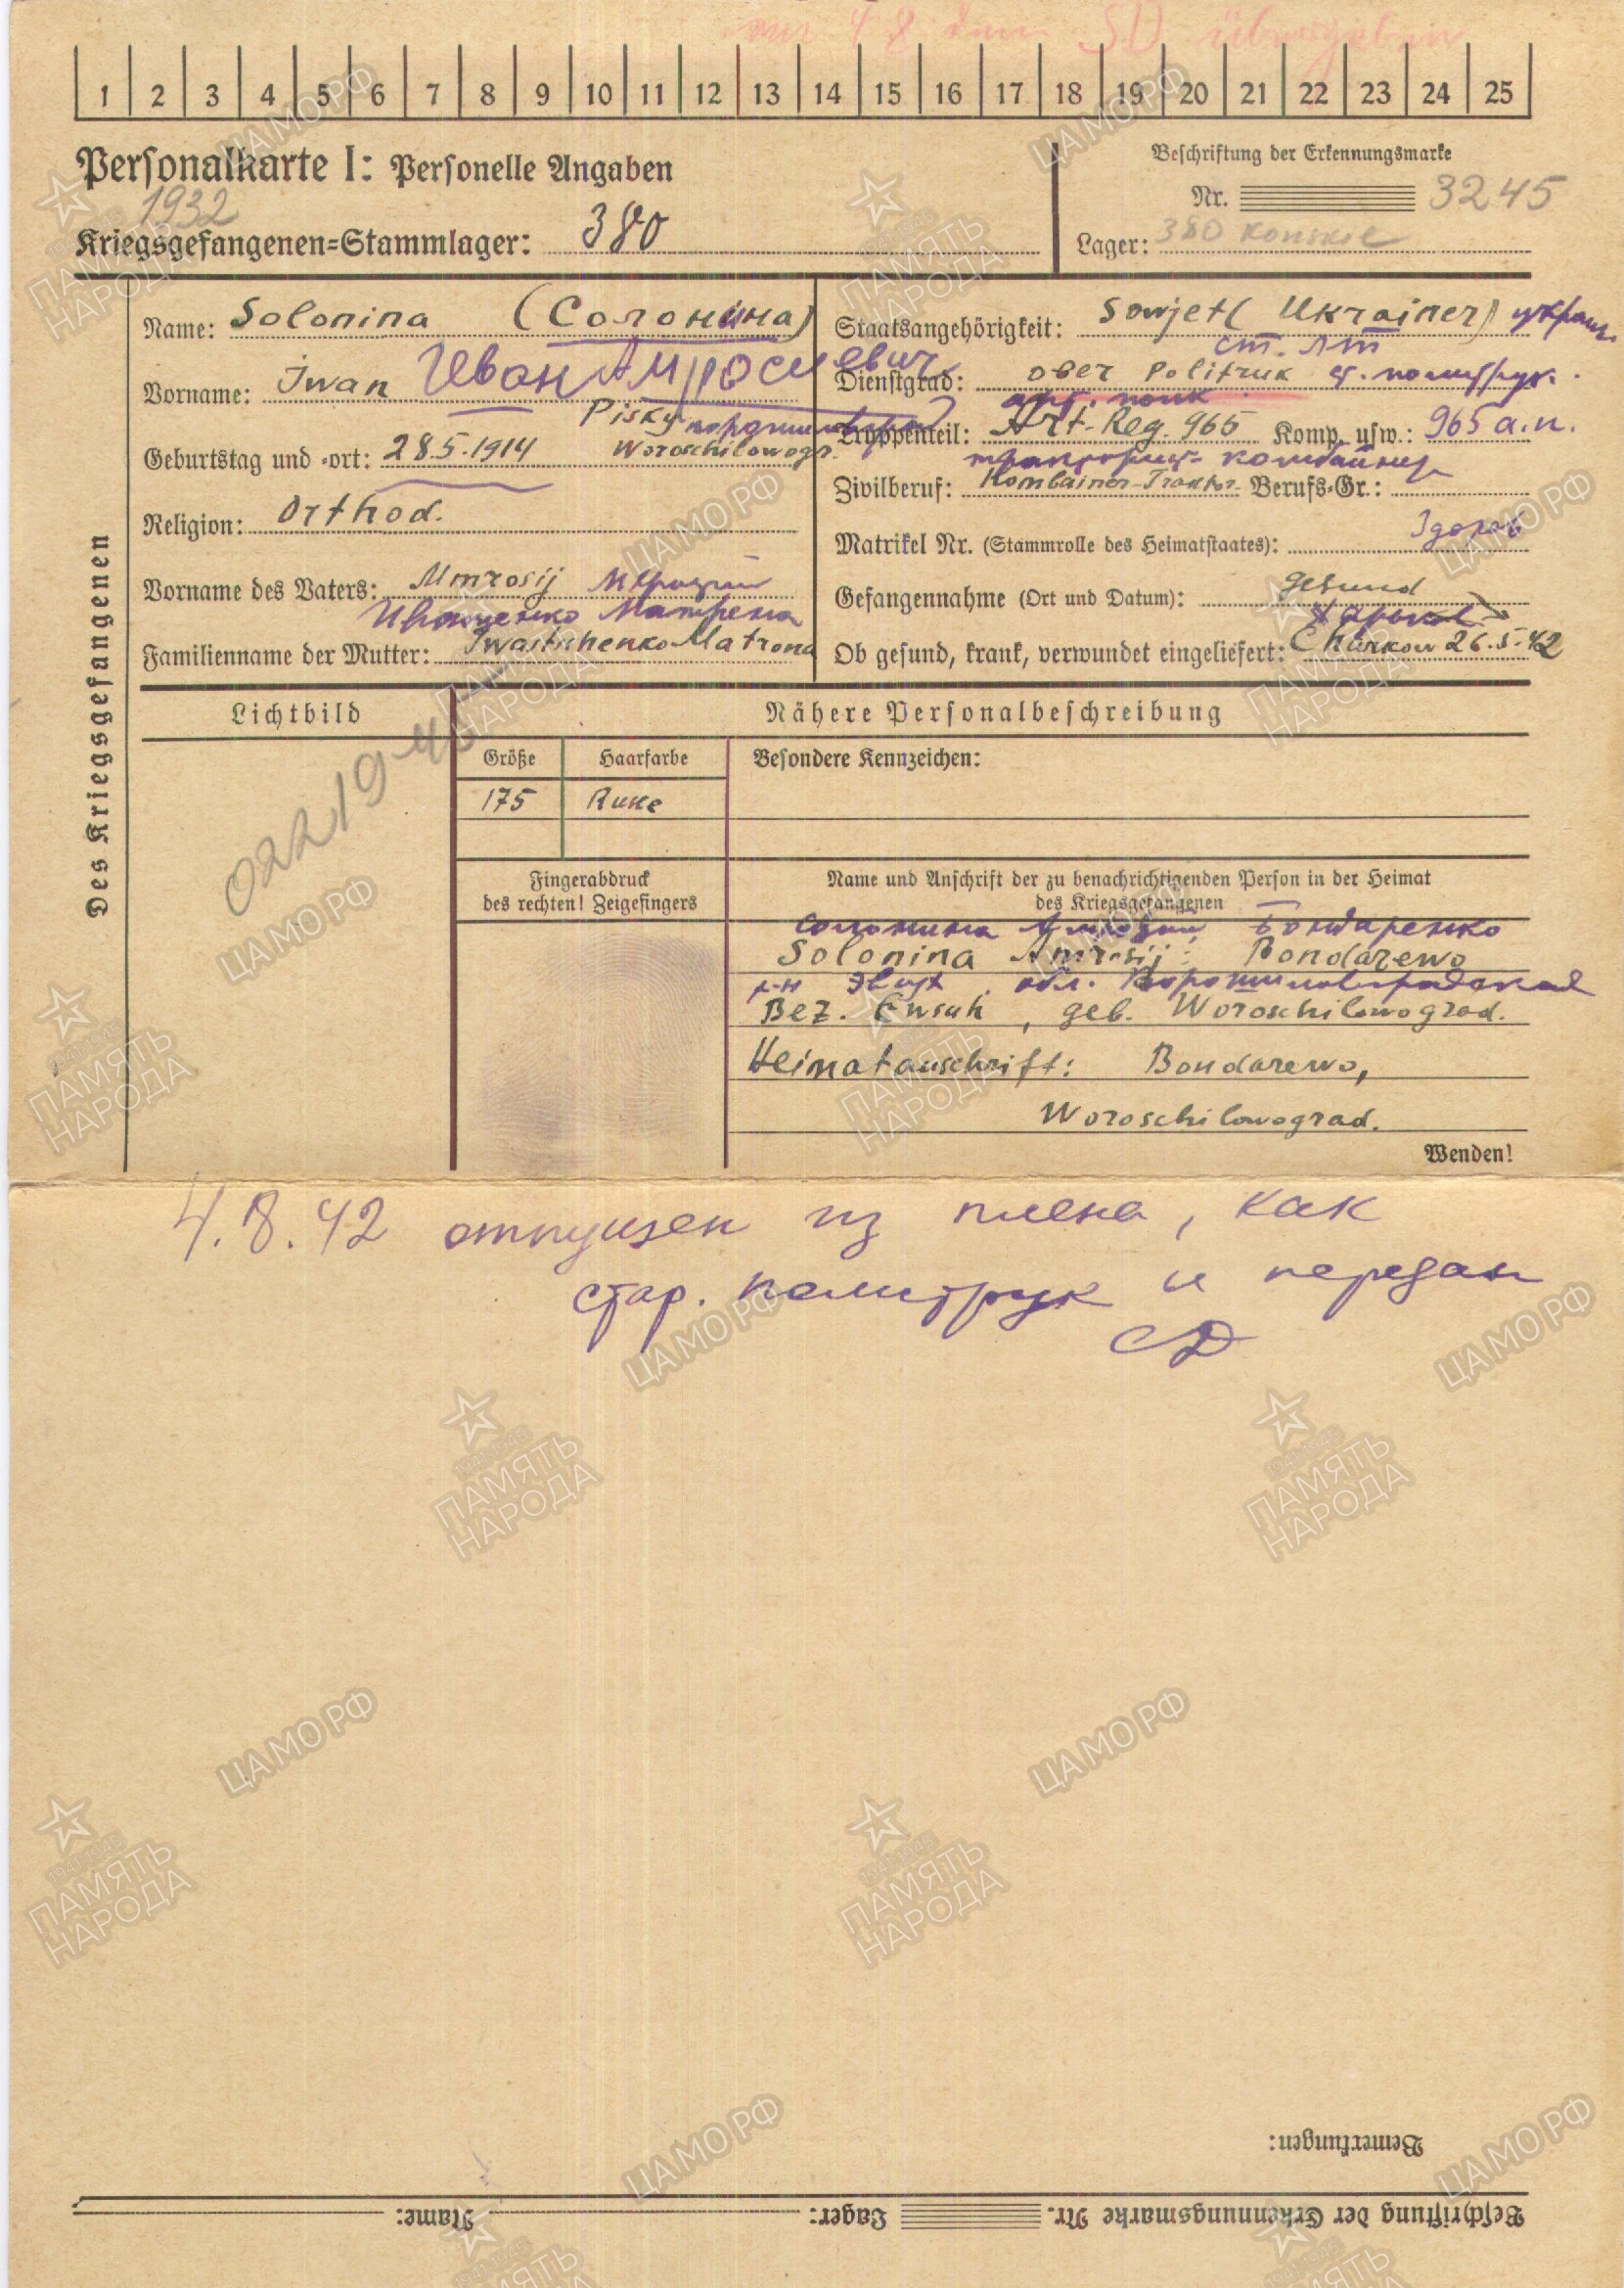 am 4.8. dem SD übergeben
1 2 3 4 5 6 7 8 9 10 11 12 13 14 15 16 17 18 19 20 21 22 23 24 25
Personalkarte I: Personelle Angaben
1932
Kriegsgefangenen=Stammlager: 380
Beschriftung der Erkennungsmarke
Nr. 3245
Lager: 380 Konskie
Des Kriegsgefangenen
Name: Solonina (Солонина)
Vorname: Iwan Иван Амросиевич
Pisky
Geburtstag und =ort: 28.5.1914 Woroschilowogr.
Religion: Orthod.
Vorname des Vaters: Amrosij
Матрена
Familienname der Mutter: Iwaschenko Matrona
Staatsangehörigkeit: Sowjet (Ukrainer) украин.
ст. лт
Dienstgrad: Ober Politruk ст. политрук.
арт. полк
Truppenteil: Art-Reg. 965 Komp. usw.: 965 а.п.
комбайнер
Zivilberuf: Kombainer-Traktor. Berufs=Gr.:
Здоров
Matrikel Nr. (Stammrolle des Heimatstaates):
Gefangennahme (Ort und Datum): gesund
Харьков
Ob gesund, krank, verwundet eingeliefert: Charkow 26.5.42
Lichtbild
02219-45
Nähere Personalbeschreibung
Größe Haarfarbe Besondere Kennzeichen:
175
Fingerabdruck
des rechten! Zeigefingers
Name und Anschrift der zu benachrichtigenden Person in der Heimat
des Kriegsgefangenen
Солонина Амросий Бондаренко
Solonina Amrosij: Bondarewo
р-н обл. Ворошиловградская
Bez. Ewsuh, geb. Woroschilowograd.
Heimatanschrift: Bondarewo,
Woroschilowograd.
Wenden!
4.8.42 отпущен из плена, как
стар. политрук и передан
СД
Bemerkungen:
Beschriftung der Erkennungsmarke Nr. Lager: Name:
ЦАМО РФ
1941-1945
ПАМЯТЬ
НАРОДА